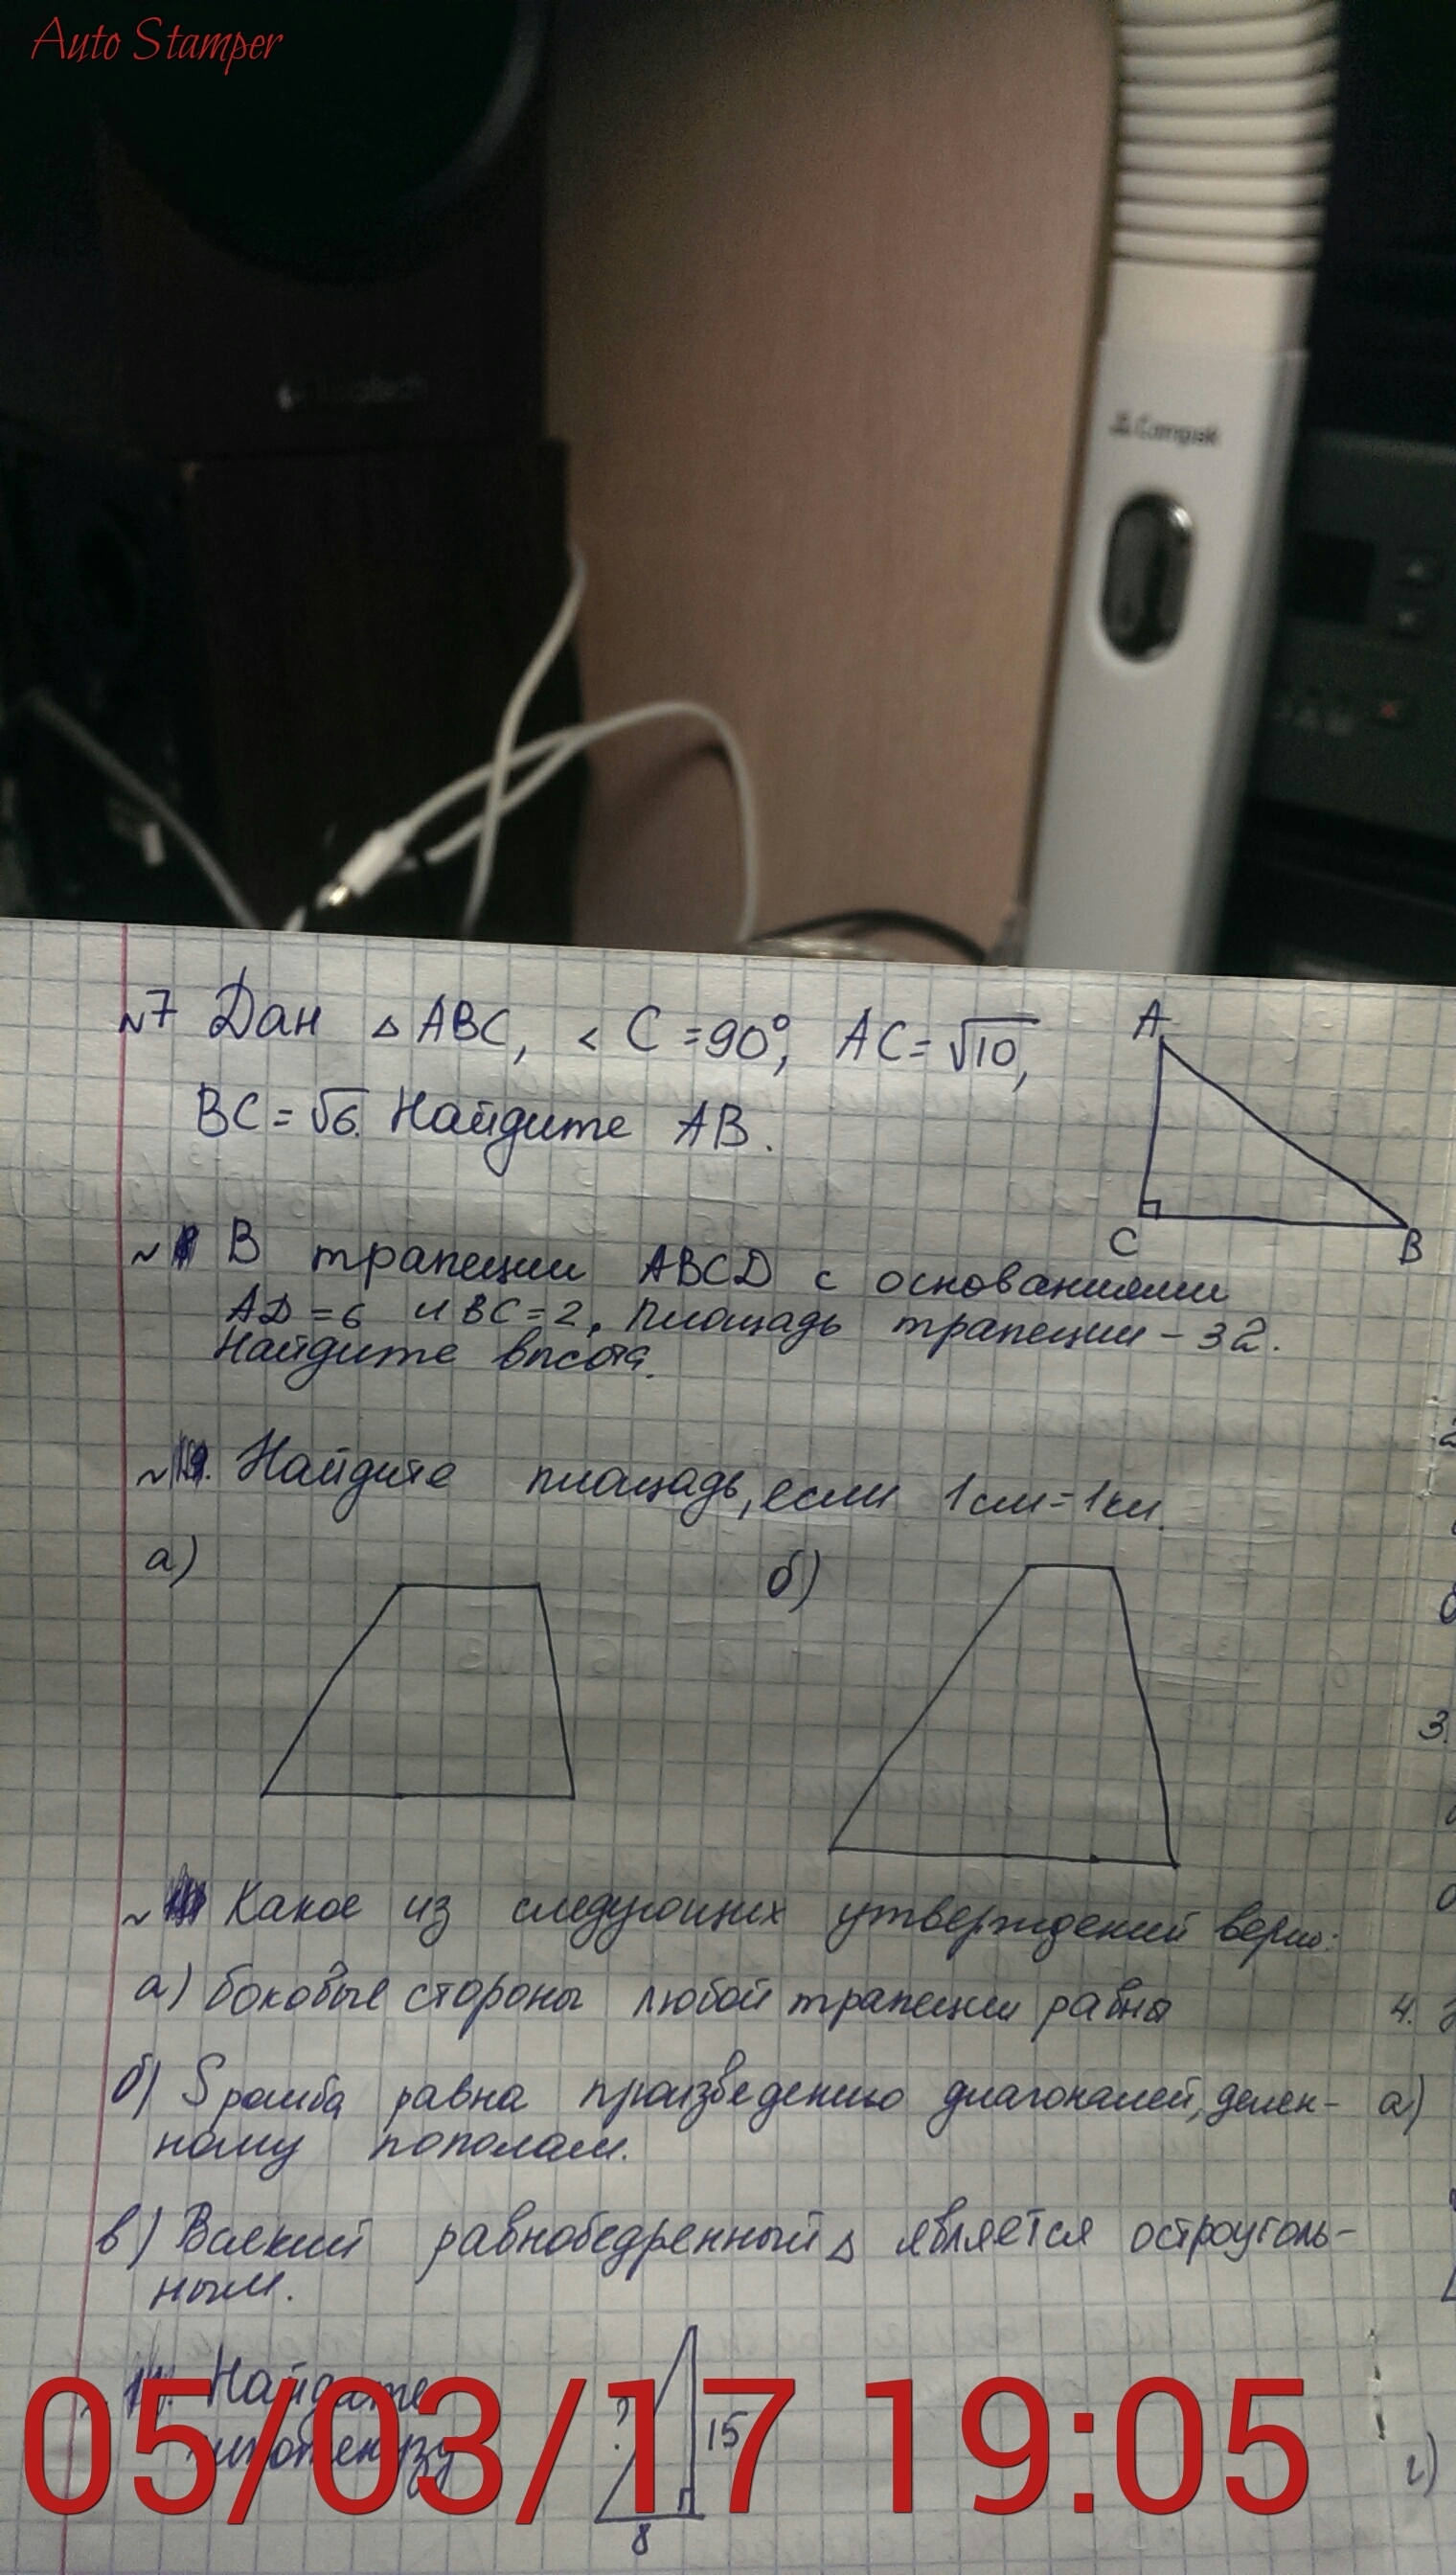 Auto Stamper
Logitech
Compak
~7 Дан △ ABC, < C = 90°, AC = √10,
BC = √6. Найдите AB.
A
C
B
~8 В трапеции ABCD с основаниями
AD = 6 и BC = 2. Площадь трапеции - 32.
Найдите высота.
~9. Найдите площадь, если 1 см = 1 км.
а)
б)
~ Какое из следующих утверждений верно:
а) боковые стороны любой трапеции равны
б) S ромба равна произведению диагоналей, делен-
ному пополам.
в) Всякий равнобедренный △ является остроуголь-
ным.
Найдите
гипотенузу
?
15
8
3.
4.
а)
г)
05/03/17 19:05